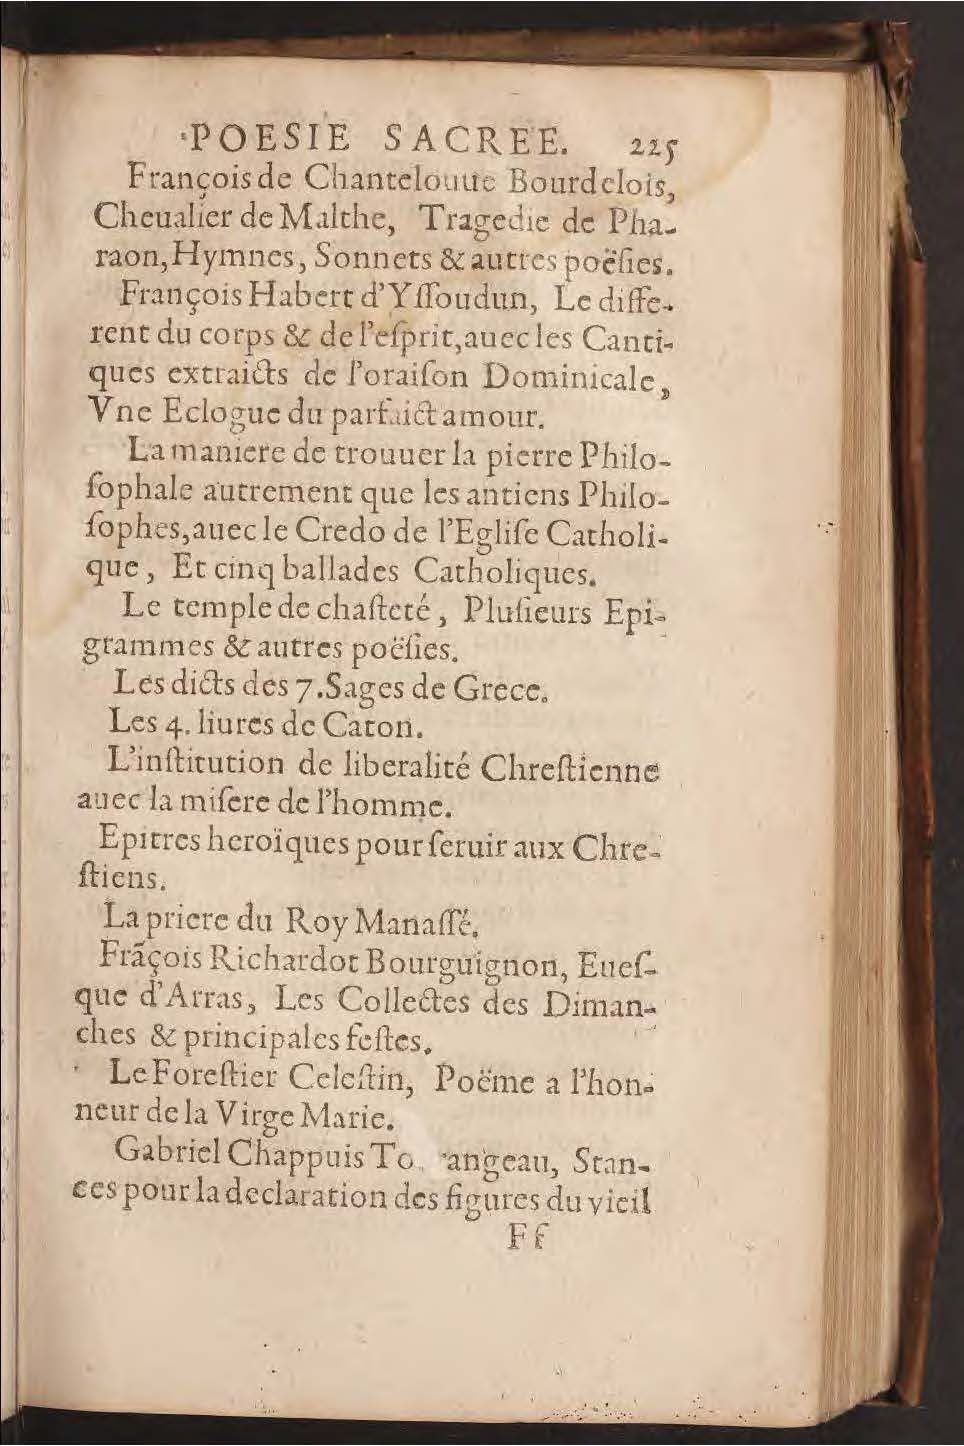 POESIE SACREE. 225
François de Chantelouue Bourdelois,
Cheualier de Malthe, Tragedie de Pha-
raon, Hymnes, Sonnets & autres poësies.
François Habert d'Yſſoudun, Le diffe-
rent du corps & de l'eſprit, auec les Canti-
ques extraicts de l'oraiſon Dominicale,
Vne Eclogue du parfaict amour.
La maniere de trouuer la pierre Philo-
ſophale autrement que les antiens Philo-
ſophes, auec le Credo de l'Egliſe Catholi-
que, Et cinq ballades Catholiques.
Le temple de chaſteté, Pluſieurs Epi-
grammes & autres poëſies.
Les dicts des 7. Sages de Grece.
Les 4. liures de Caton.
L'inſtitution de liberalité Chreſtienne
auec la miſere de l'homme.
Epitres heroïques pour ſeruir aux Chre-
ſtiens.
La priere du Roy Manaſſé.
Frãçois Richardot Bourguignon, Eueſ-
que d'Arras, Les Collectes des Diman-
ches & principales feſtes.
Le Foreſtier Celeſtin, Poëme a l'hon-
neur de la Virge Marie.
Gabriel Chappuis To angeau, Stan-
ces pour la declaration des figures du vieil
Ff